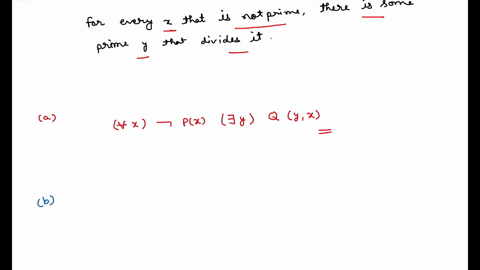 for every x that is not prime, there is some
prime y that divides it.
(a) (∀ x) ¬ P(x) (∃ y) Q (y, x)
(b)